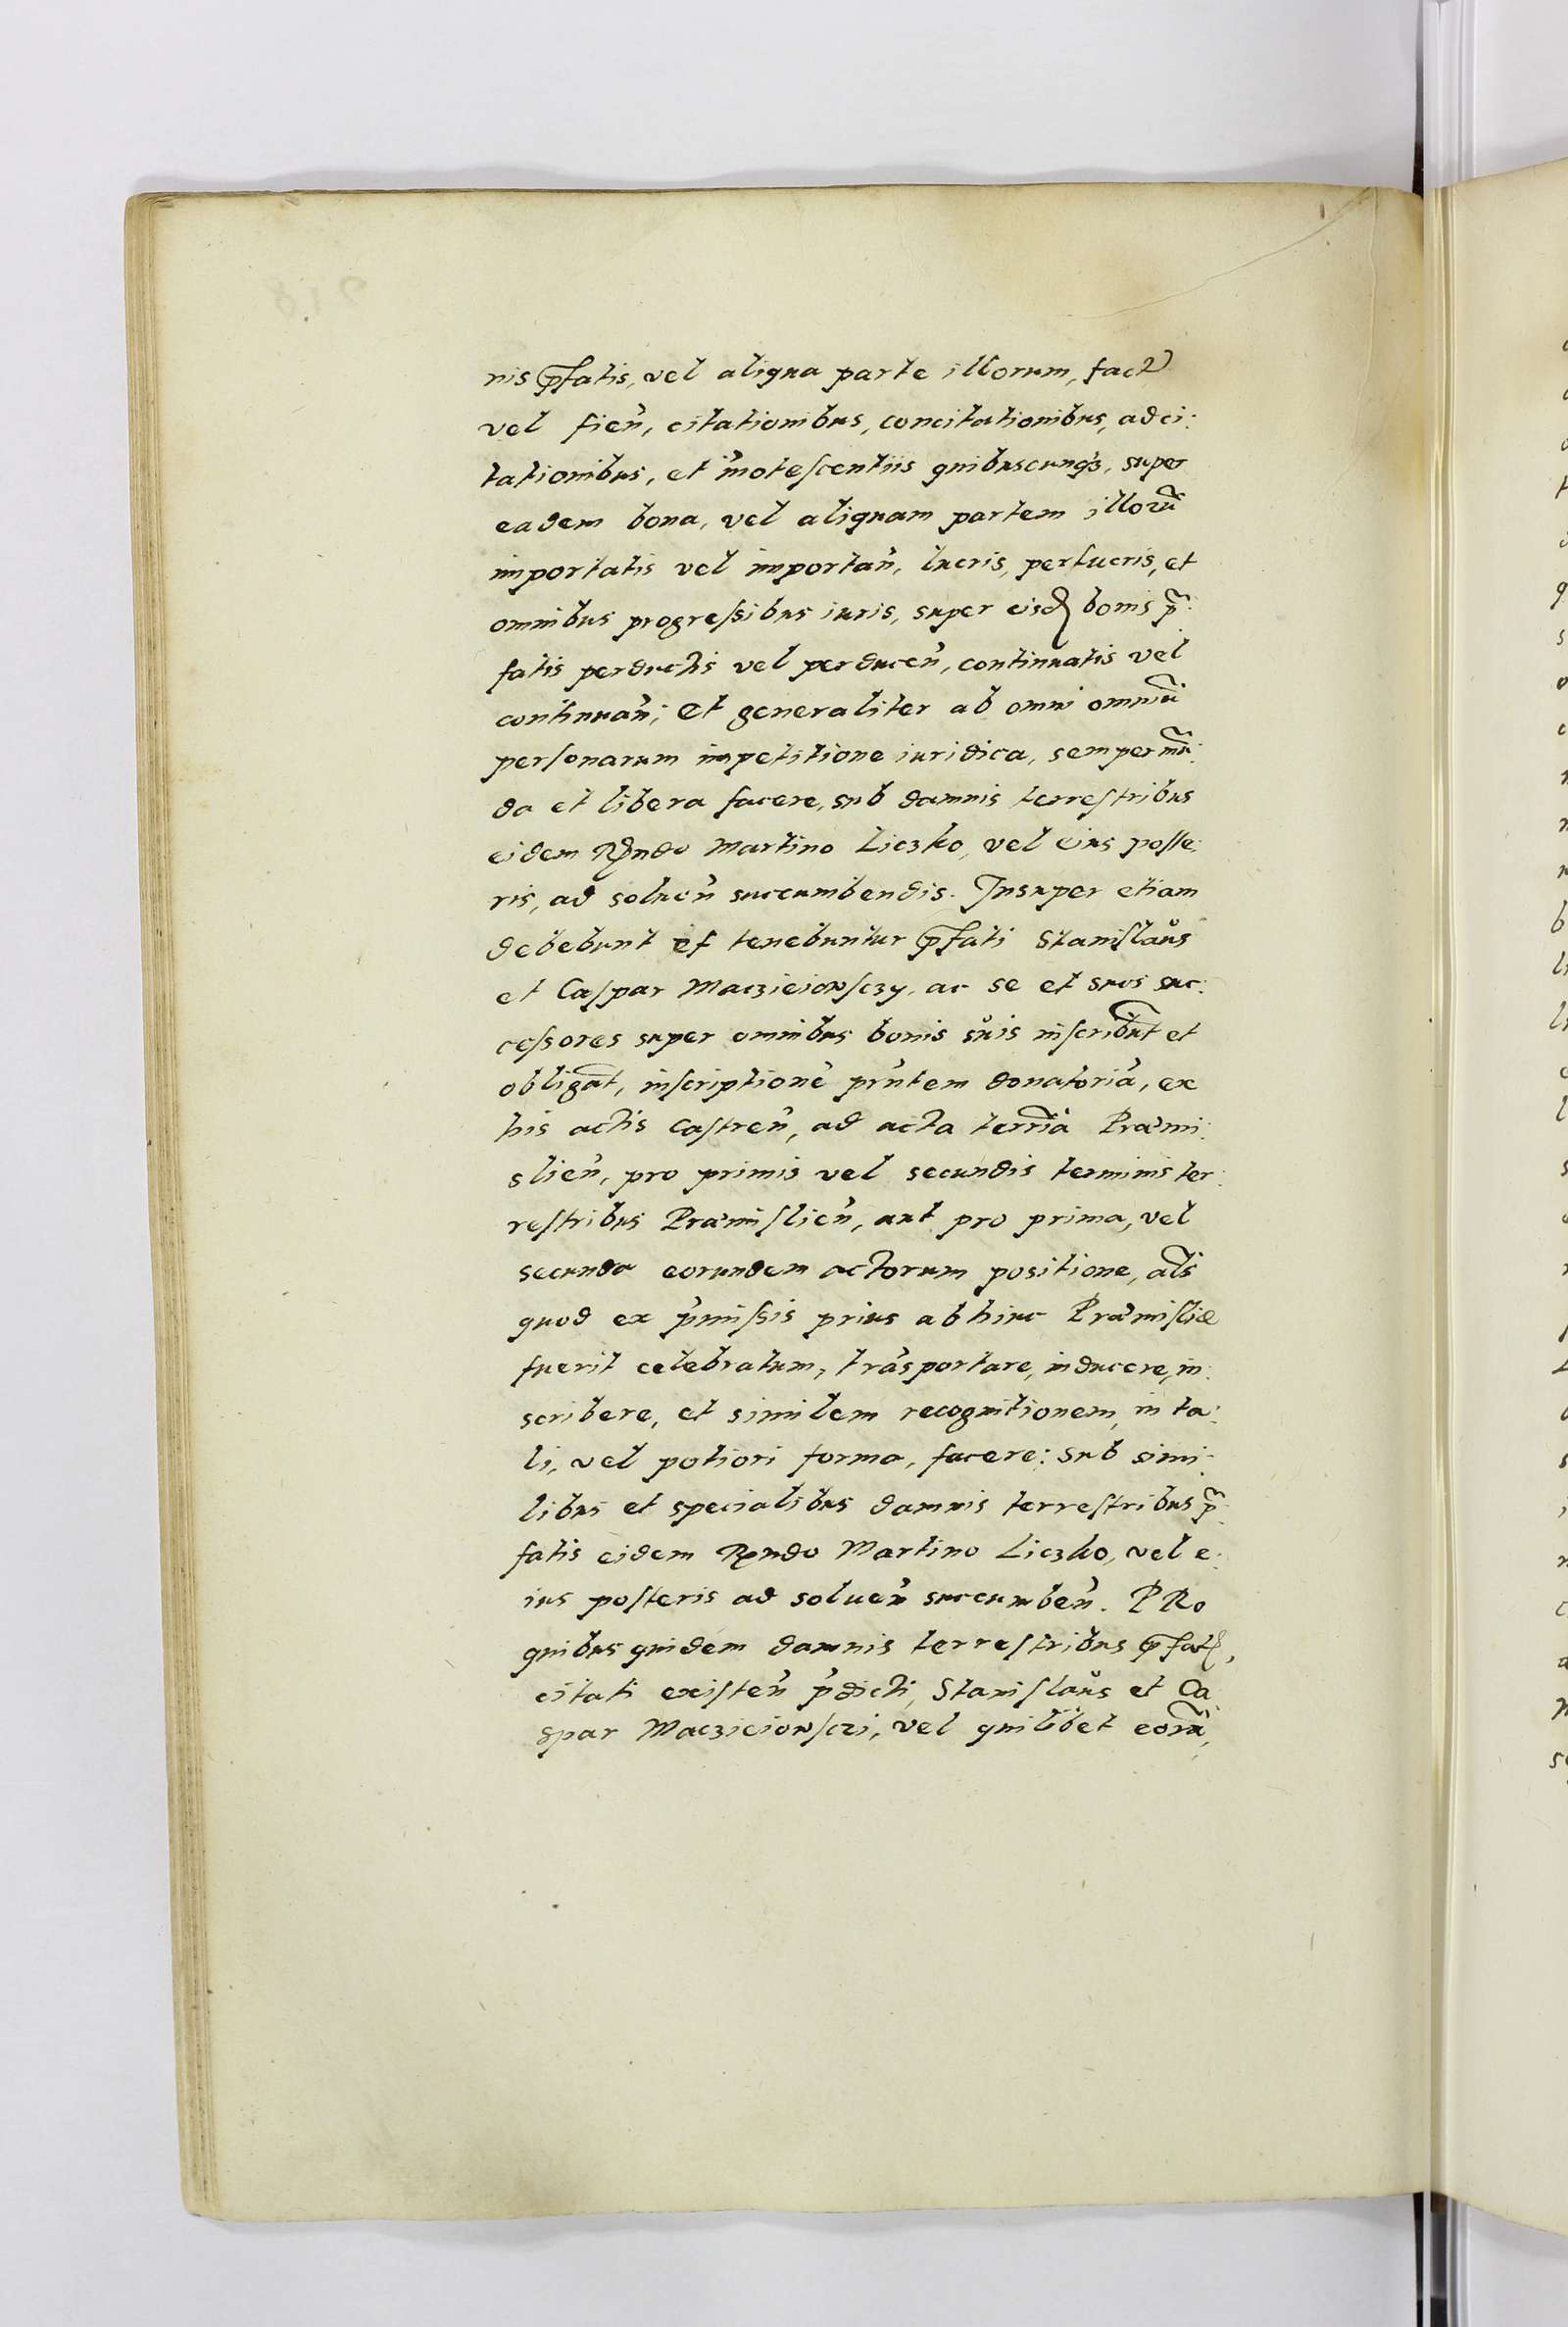 nis p̃fatis, vel aliqua parte illorum, fact
vel fień, citationibus, concitationibus, adci:
tationibus, et ĩnotescentiis quibuscunqʒ, super
eadem bona, vel aliquam partem illorũ
importatis vel importań, lucris, perlucris, et
omnibus progreſsibus iuris, super eisd bonis p̃:
fatis perductis vel perduceń, continuatis vel
continuań; et generaliter ab omni omniũ
perſonarum impetitione iuridica, semper mũ:
da et libera facere, sub damnis terreſtribus
eidem Rñdo Martino Liczko, vel eius poſte:
ris, ad solueń succumbendis. Insuper etiam
debebunt et tenebuntur p̃fati Staniſlaus
et Caſpar Maczieiowſczy, ac se et suos suc:
ceſsores super omnibus bonis suis inſcribũt et
obligãt, inſcriptionẽ pñtem donatoriã, ex
his actis Caſtreń, ad acta terrĩa Præmi:
slień, pro primis vel secundis terminis ter:
reſtribus Præmiſlień, aut pro prima, vel
secunda eorundem actorum positione, al̃s
quod ex p̃miſsis prius abhinc Præmiſliæ
fuerit celebratum, trãsportare, inducere, in:
scribere, et similem recognitionem, in ta:
li, vel potiori forma, facere: Sub simi:
libus et specialibus damnis terreſtribus p̃:
fatis eidem Rñdo Martino Liczko, vel e:
ius poſteris ad solueń succumbeń. PRo
quibus quidem damnis terreſtribus p̃fat,
citati exiſteń p̃dicti, Staniſlaus et Ca
spar Maczieiowſczi, vel quilibet eorũ,